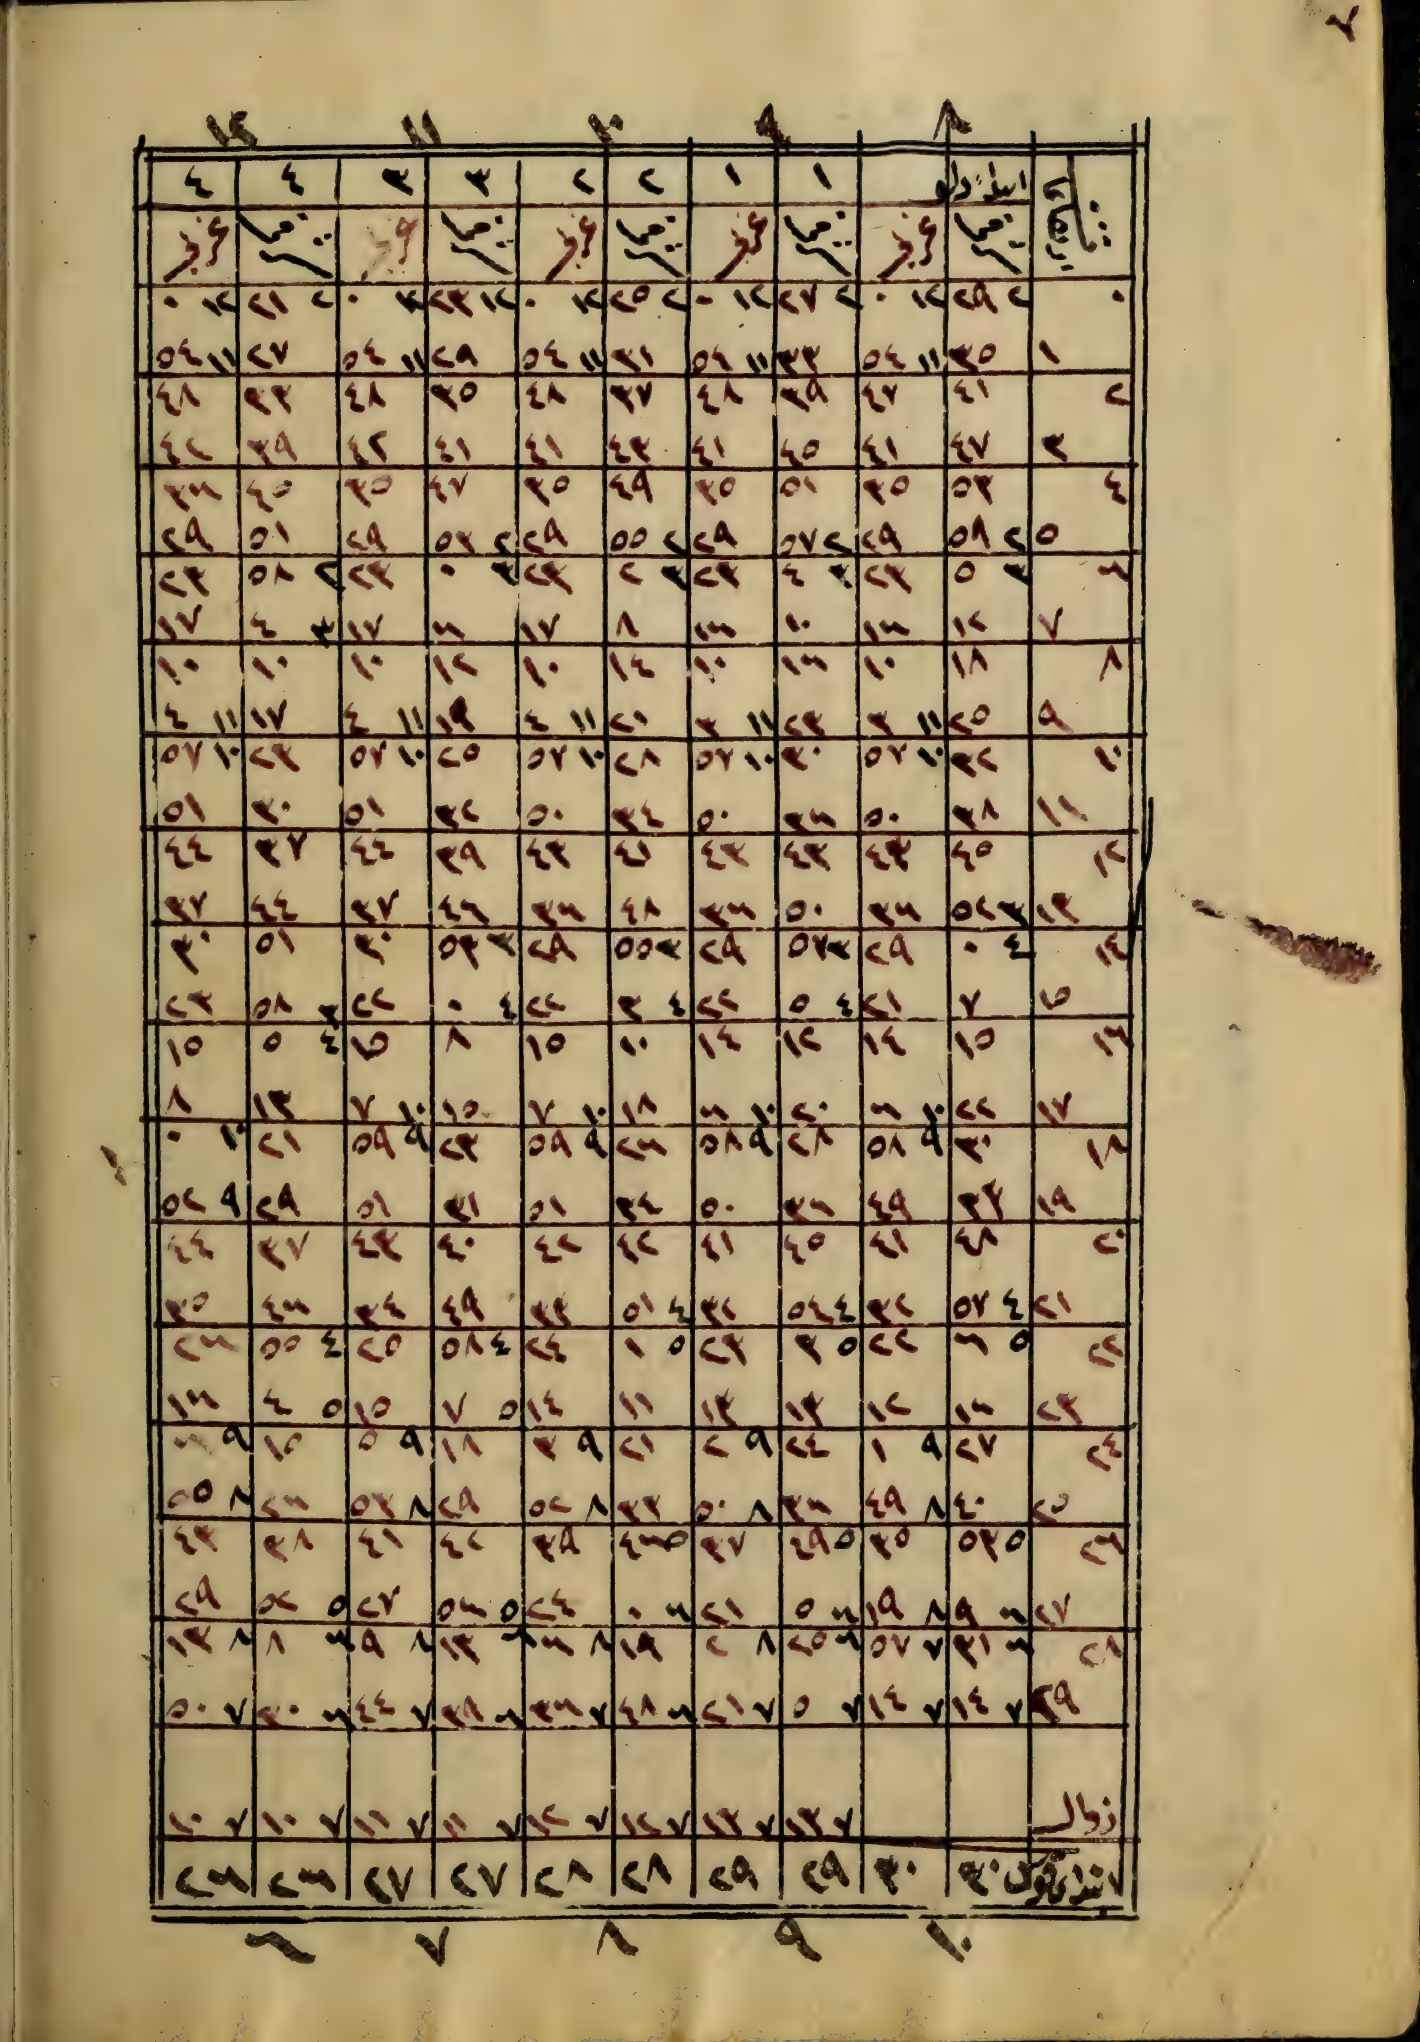 ٢
٨ ٩ ١٠ ١١ ١٢
دلو ١ ١ ٢ ٢ ٣ ٣ ٤ ٤
٠ ٢ ٢٩ ١٢ ٠ ٢ ٢٧ ١٢ ٠ ٢ ٢٥ ١٢ ٠ ١٢ ٢٣ ١٢ ٠ ٢ ٢١ ١٢ ٠
١ ٣٥ ١١ ٥٤ ٣٣ ١١ ٥٤ ٣١ ١١ ٥٤ ٢٩ ١١ ٥٤ ٢٧ ١١ ٥٤
٢ ٤١ ٤٧ ٣٩ ٤٨ ٣٧ ٤٨ ٣٥ ٤٨ ٣٣ ٤٨
٣ ٤٧ ٤١ ٤٥ ٤١ ٤٣ ٤١ ٤١ ٤٢ ٣٩ ٤٢
٤ ٥٣ ٣٥ ٥١ ٣٥ ٤٩ ٣٥ ٤٧ ٣٥ ٤٥ ٣٦
٥ ٢ ٥٩ ٢٩ ٢ ٥٧ ٢٩ ٢ ٥٥ ٢٩ ٢ ٥٣ ٢٩ ٥١ ٢٩
٦ ٣ ٥ ٢٣ ٣ ٤ ٢٣ ٣ ٢ ٢٣ ٣ ٠ ٢٣ ٢ ٥٨ ٢٣
٧ ١٢ ١٦ ١٠ ١٦ ٨ ١٧ ٦ ١٧ ٣ ٤ ١٧
٨ ١٨ ١٠ ١٦ ١٠ ١٤ ١٠ ١٢ ١٠ ١٠ ١٠
٩ ٢٥ ١١ ٣ ٢٣ ١١ ٣ ٢١ ١١ ٤ ١٩ ١١ ٤ ١٧ ١١ ٤
١٠ ٣٢ ١٠ ٥٧ ٣٠ ١٠ ٥٧ ٢٨ ١٠ ٥٧ ٢٥ ١٠ ٥٧ ٢٣ ١٠ ٥٧
١١ ٣٨ ٥٠ ٣٦ ٥٠ ٣٤ ٥٠ ٣٢ ٥١ ٣٠ ٥١
١٢ ٤٥ ٤٣ ٤٣ ٤٣ ٤١ ٤٣ ٣٩ ٤٤ ٣٧ ٤٤
١٣ ٣ ٥٢ ٣٦ ٥٠ ٣٦ ٤٨ ٣٦ ٤٦ ٣٧ ٤٤ ٣٧
١٤ ٤ ٠ ٢٩ ٣ ٥٧ ٢٩ ٣ ٥٥ ٢٩ ٣ ٥٣ ٣٠ ٥١ ٣٠
١٥ ٧ ٢١ ٤ ٥ ٢٢ ٤ ٣ ٢٢ ٤ ٠ ٢٢ ٣ ٥٨ ٢٣
١٦ ١٥ ١٤ ١٢ ١٤ ١٠ ١٥ ٨ ١٥ ٤ ٥ ١٥
١٧ ٢٢ ١٠ ٦ ٢٠ ١٠ ٦ ١٨ ١٠ ٧ ١٥ ١٠ ٧ ١٣ ٨
١٨ ٣٠ ٩ ٥٨ ٢٨ ٩ ٥٨ ٢٦ ٩ ٥٩ ٢٣ ٩ ٥٩ ٢١ ١٠ ٠
١٩ ٣٩ ٤٩ ٣٦ ٥٠ ٣٤ ٥١ ٣١ ٥١ ٢٩ ٩ ٥٢
٢٠ ٤٨ ٤١ ٤٥ ٤١ ٤٢ ٤٢ ٤٠ ٤٣ ٣٧ ٤٤
٢١ ٤ ٥٧ ٣٢ ٤ ٥٤ ٣٢ ٤ ٥١ ٣٣ ٤٩ ٣٤ ٤٦ ٣٥
٢٢ ٥ ٦ ٢٢ ٥ ٣ ٢٣ ٥ ١ ٢٤ ٤ ٥٨ ٢٥ ٤ ٥٥ ٢٦
٢٣ ١٦ ١٢ ١٣ ١٣ ١١ ١٤ ٥ ٧ ١٥ ٥ ٤ ١٦
٢٤ ٢٧ ٩ ١ ٢٤ ٩ ٢ ٢١ ٩ ٣ ١٨ ٩ ٥ ١٥ ٩ ٦
٢٥ ٤٠ ٨ ٤٩ ٣٦ ٨ ٥٠ ٣٣ ٨ ٥٢ ٢٩ ٨ ٥٣ ٢٦ ٨ ٥٥
٢٦ ٥ ٥٣ ٣٥ ٥ ٤٩ ٣٧ ٥ ٤٦ ٣٩ ٤٢ ٤١ ٣٨ ٤٣
٢٧ ٦ ٩ ٨ ١٩ ٦ ٥ ٢١ ٦ ٠ ٢٤ ٥ ٥٦ ٢٧ ٥ ٥٢ ٢٩
٢٨ ٦ ٣١ ٧ ٥٧ ٦ ٢٥ ٨ ٢ ٦ ١٩ ٨ ٦ ٦ ١٣ ٨ ٩ ٦ ٨ ٨ ١٣
٢٩ ٧ ١٤ ٧ ١٤ ٧ ٥ ٧ ٢١ ٦ ٤٨ ٧ ٣٦ ٦ ٣٩ ٧ ٤٤ ٦ ٣٠ ٧ ٥٠
زوال ٧ ١٣ ٧ ١٣ ٧ ١٢ ٧ ١٢ ٧ ١١ ٧ ١١ ٧ ١٠ ٧ ١٠
٣٠ ٣٠ ٢٩ ٢٩ ٢٨ ٢٨ ٢٧ ٢٧ ٢٦ ٢٦
١٠ ٩ ٨ ٧ ٦